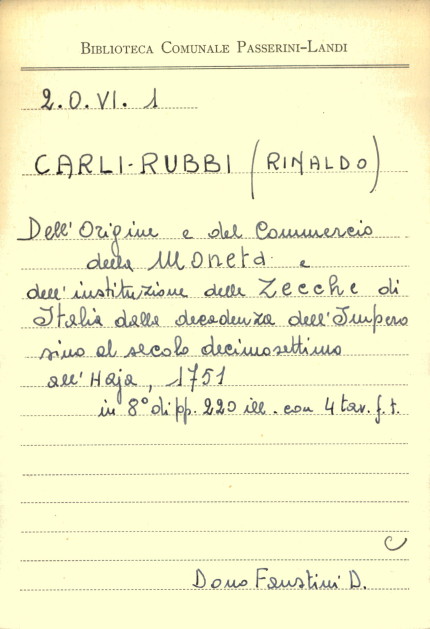 BIBLIOTECA COMUNALE PASSERINI-LANDI
2.O.VI. 1
CARLI-RUBBI (RINALDO)
Dell'Origine e del Commercio
della Moneta e
dell'instituzione delle Zecche di
Italia dalla decadenza dell'Impero
sino al secolo decimosettimo
all'Haja, 1751
in 8° di pp. 220 ill. con 4 tav. f.t.
C
Dono Faustini D.